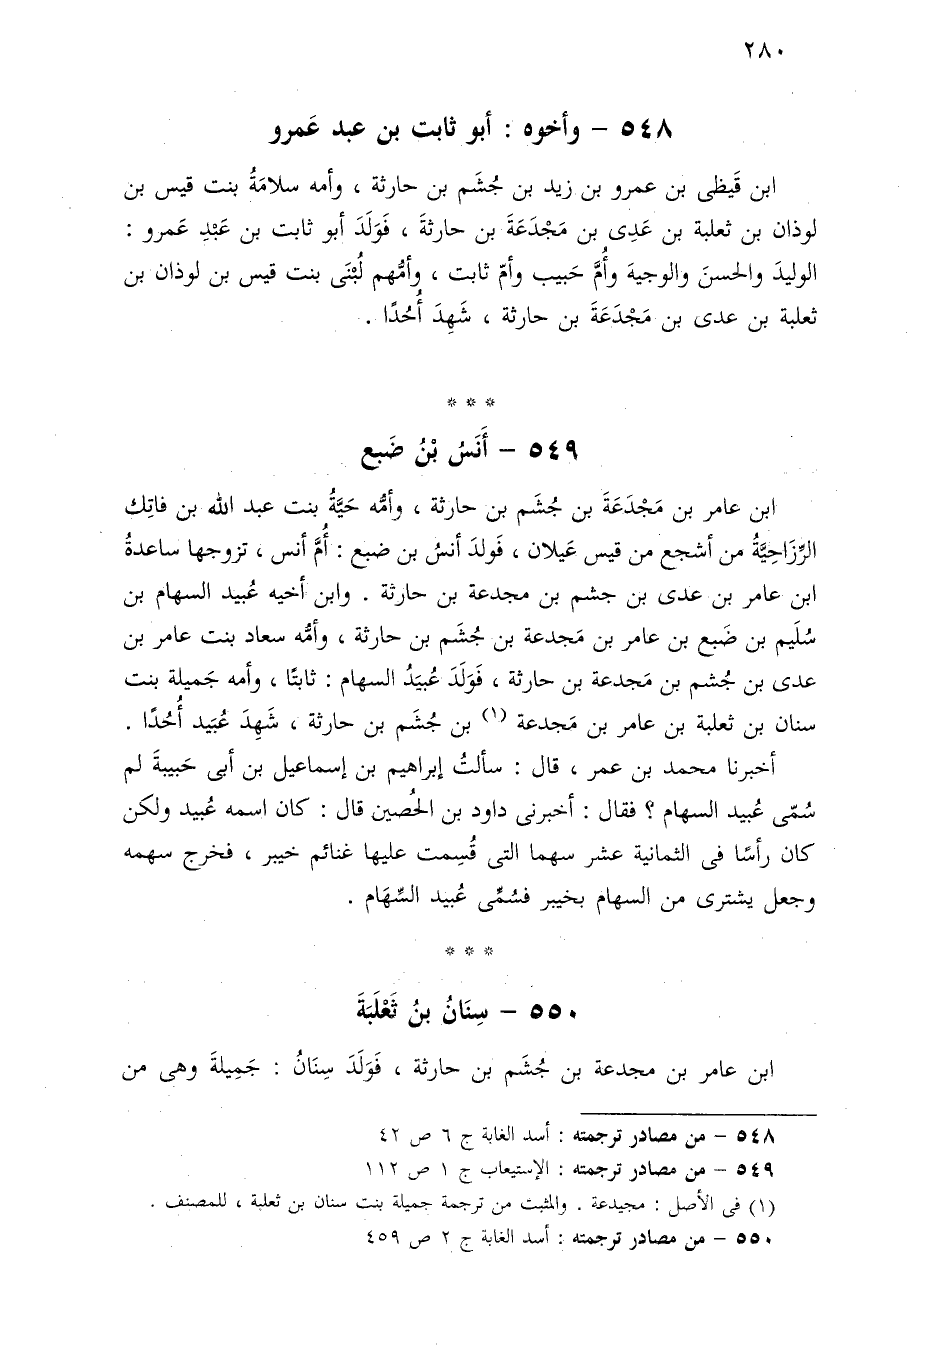 ٢٨٠
٥٤٨ – وأخوه : أبو ثابت بن عبد عَمرو
ابن قَيظى بن عمرو بن زيد بن جُشَم بن حارثة ، وأمه سلامَةُ بنت قيس بن
لوذان بن ثعلبة بن عَدِى بن مَجْدَعَةَ بن حارثةَ ، فَوَلَدَ أبو ثابت بن عَبْدِ عَمرو :
الوليدَ والحسنَ والوجيهَ وأُمَّ حَبيب وأمّ ثابت ، وأمُّهم لُبْنَى بنت قيس بن لوذان بن
ثعلبة بن عدى بن مَجْدَعَةَ بن حارثة ، شَهِدَ أُحُدًا .
* * *
٥٤٩ – أَنَسُ بْنُ ضَبع
ابن عامر بن مَجْدَعَةَ بن جُشَم بن حارثة ، وأمُّه حَيَّةُ بنت عبد الله بن فاتِك
الرِّزَاحِيَّةُ من أشجع من قيس عَيلان ، فَولدَ أنسُ بن ضبع : أُمَّ أنس ، تزوجها ساعدةُ
ابن عامر بن عدى بن جشم بن مجدعة بن حارثة . وابن أخيه عُبيد السهام بن
سُلَيم بن ضَبع بن عامر بن مَجدعة بن جُشَم بن حارثة ، وأمُّه سعاد بنت عامر بن
عدى بن جُشم بن مَجدعة بن حارثة ، فَوَلَدَ عُبيَدُ السهام : ثابتًا ، وأمه جَميلة بنت
سنان بن ثعلبة بن عامر بن مَجدعة (١) بن جُشَم بن حارثة ، شَهِدَ عُبَيد أُحُدًا .
أخبرنا محمد بن عمر ، قال : سألتُ إبراهيم بن إسماعيل بن أبى حَبيبةَ لم
سُمّى عُبيد السهام ؟ فقال : أخبرنى داود بن الحُصين قال : كان اسمه عُبيد ولكن
كان رأسًا فى الثمانية عشر سهما التى قُسِمت عليها غنائم خيبر ، فخرج سهمه
وجعل يشترى من السهام بخيبر فسُمِّى عُبيد السِّهَام .
* * *
٥٥٠ – سِنَانُ بنُ ثَعْلَبَةَ
ابن عامر بن مجدعة بن جُشَم بن حارثة ، فَوَلَدَ سِنَانُ : جَمِيلةَ وهى من
٥٤٨ – من مصادر ترجمته : أسد الغابة ج ٦ ص ٤٢
٥٤٩ – من مصادر ترجمته : الإستيعاب ج ١ ص ١١٢
(١) فى الأصل : مجيدعة . والمثبت من ترجمة جميلة بنت سنان بن ثعلبة ، للمصنف .
٥٥٠ – من مصادر ترجمته : أسد الغابة ج ٢ ص ٤٥٩